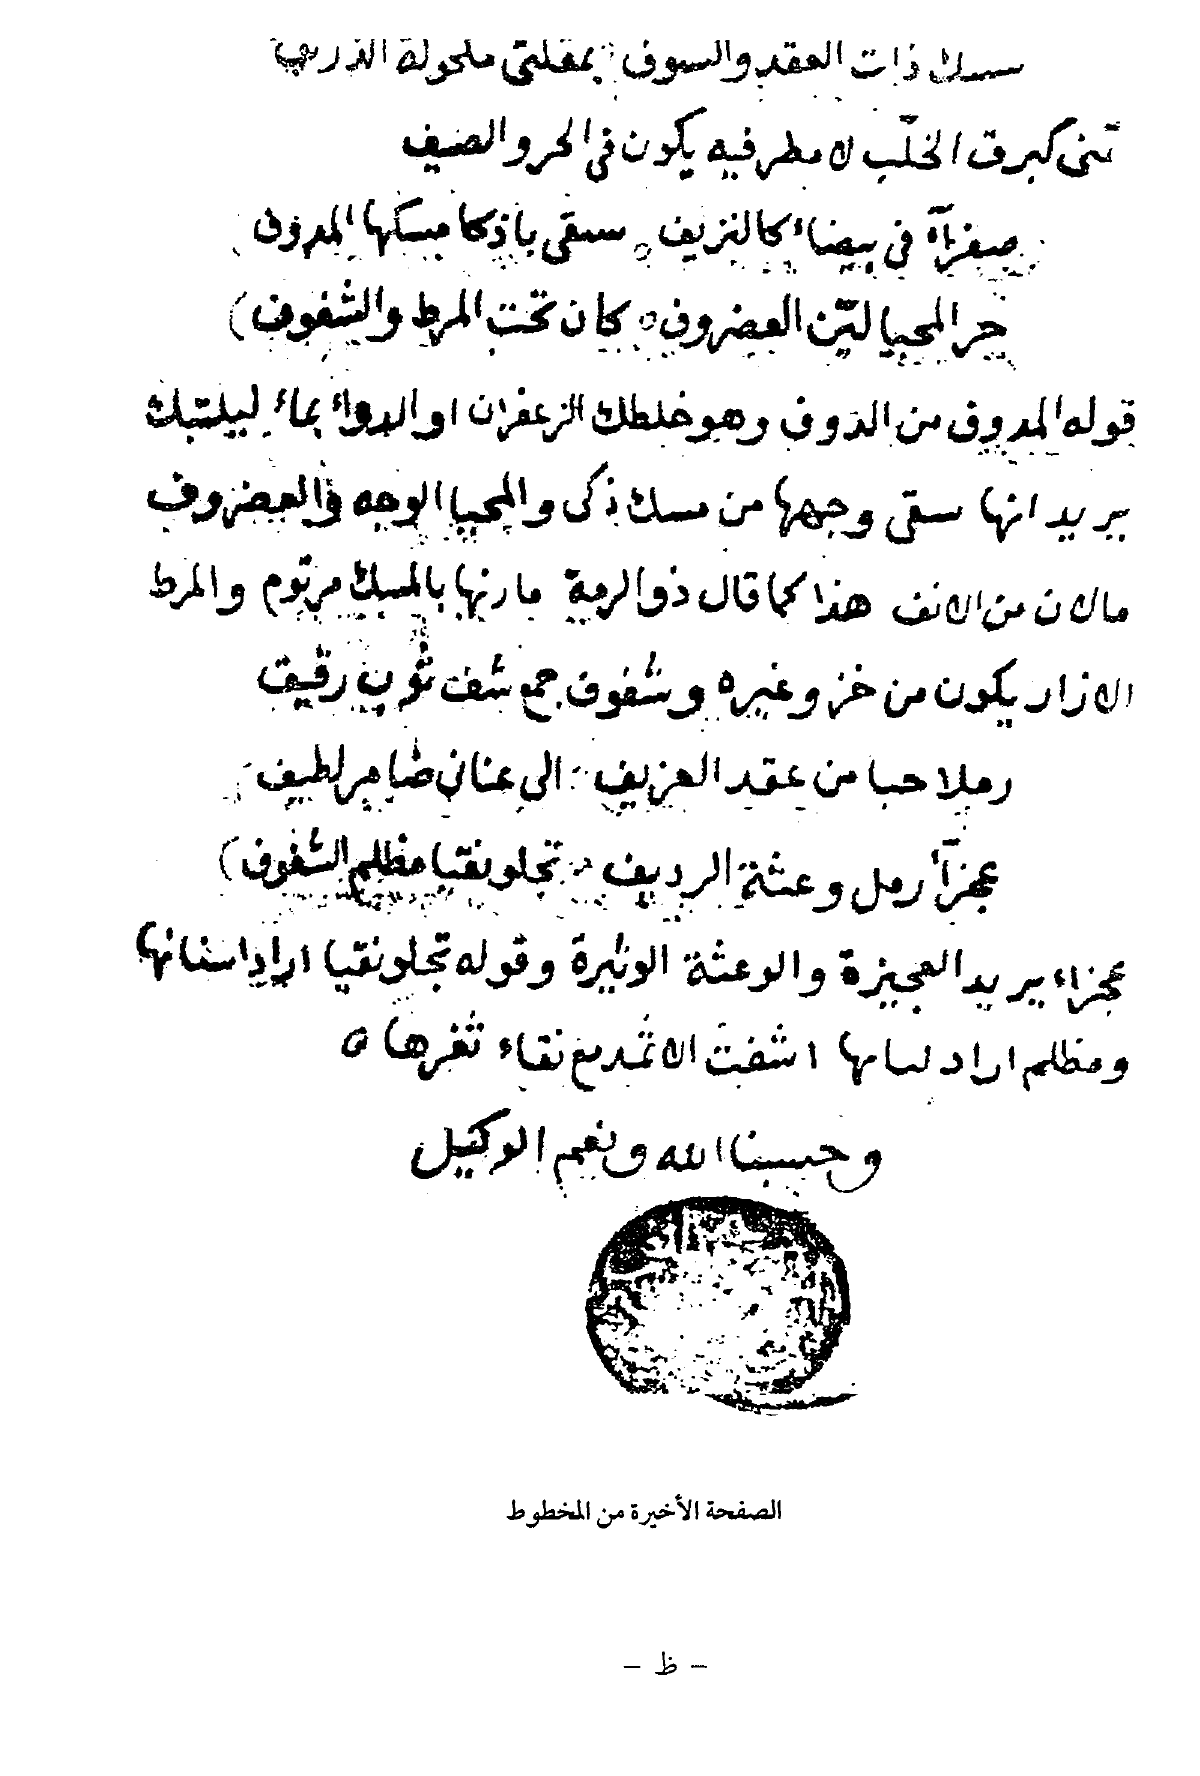 سبتك ذات العقد والسوف بمقلتي مكحولة الذريف
تنى كبرق الخلّب لا مطر فيه يكون في الحر والصيف
صفرآة في بيضاء كالنزيف سقى باذكا مسكها المدوف
حر المحيا ليّن العضروف كان تحت المرط والشفوف)
قوله المدوف من الدوف وهو خلطك الزعفران او الدواء بماء ليبتلك
يريد انها سقى وجهها من مسك ذكى والمحيا الوجه والعضروف
مالان من الانف هذا كما قال ذو الرمة مارنها بالمسك مرثوم والمرط
الازار يكون من خز وغيره وشفوف جمع شف ثوب رقيق
رملا حبا من عقد العزيف الى عنان ضامر لطيف
عجزآ رمل وعثة الرديف تجلو نقيا مظلم الشفوف)
عجزاء يريد العجيزة والوعثة الوثيرة وقوله تجلو نقيا اراد اسنانها
ومظلم اراد لباتها اشفت الاثمد مع نقاء ثغرها ه
وحسبنا الله ونعم الوكيل
الصفحة الأخيرة من المخطوط
– ظ –